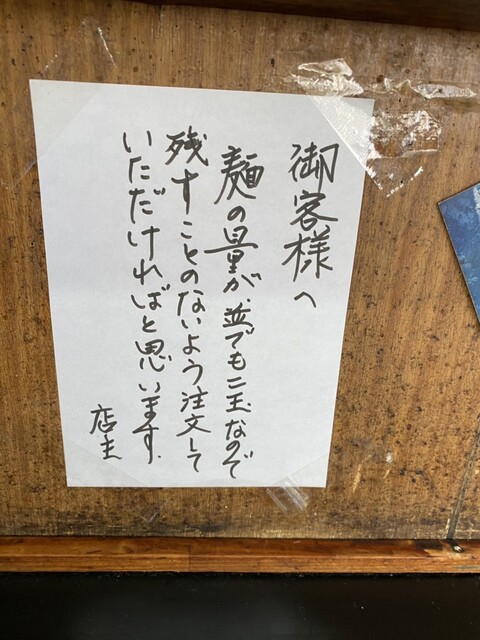 御客様へ
麺の量が、並でも二玉なので
残すことのないよう注文して
いただければと思います.
店主